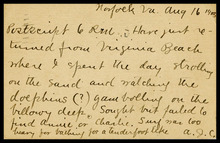 Norfolk Va. Aug 16
Postscript to Red. I have just re-
turned from Virginia Beach
where I spent the day strolling
on the sand and watching the
dolphins (?) gambolling on the
billowy deep. Sought but failed to
find Annie or Charlie. Surf was too
heavy for bathing for a tenderfoot like